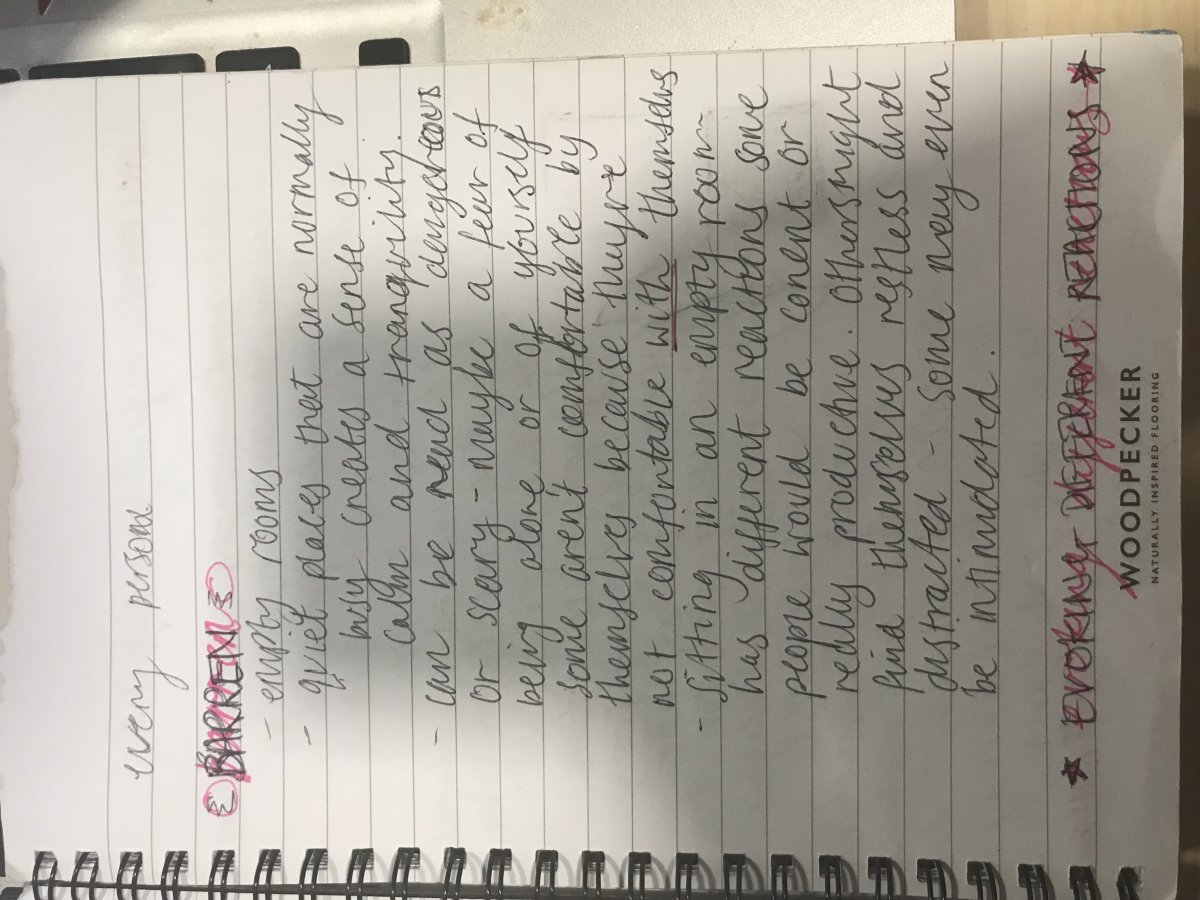 every person
BARREN
- empty rooms
- quiet places that are normally
busy creates a sense of
calm and tranquility.
- can be read as dangereous
or scary - maybe a fear of
being alone or of yourself
some aren't comfortable by
themselves because theyre
not comfortable with themselves
- sitting in an empty room
has different reactions some
people would be conent or
really productive. Others might
find themselves restless and
distracted - some may even
be intimidated.
★ EVOKING DIFFERENT REACTIONS ★
WOODPECKER
NATURALLY INSPIRED FLOORING